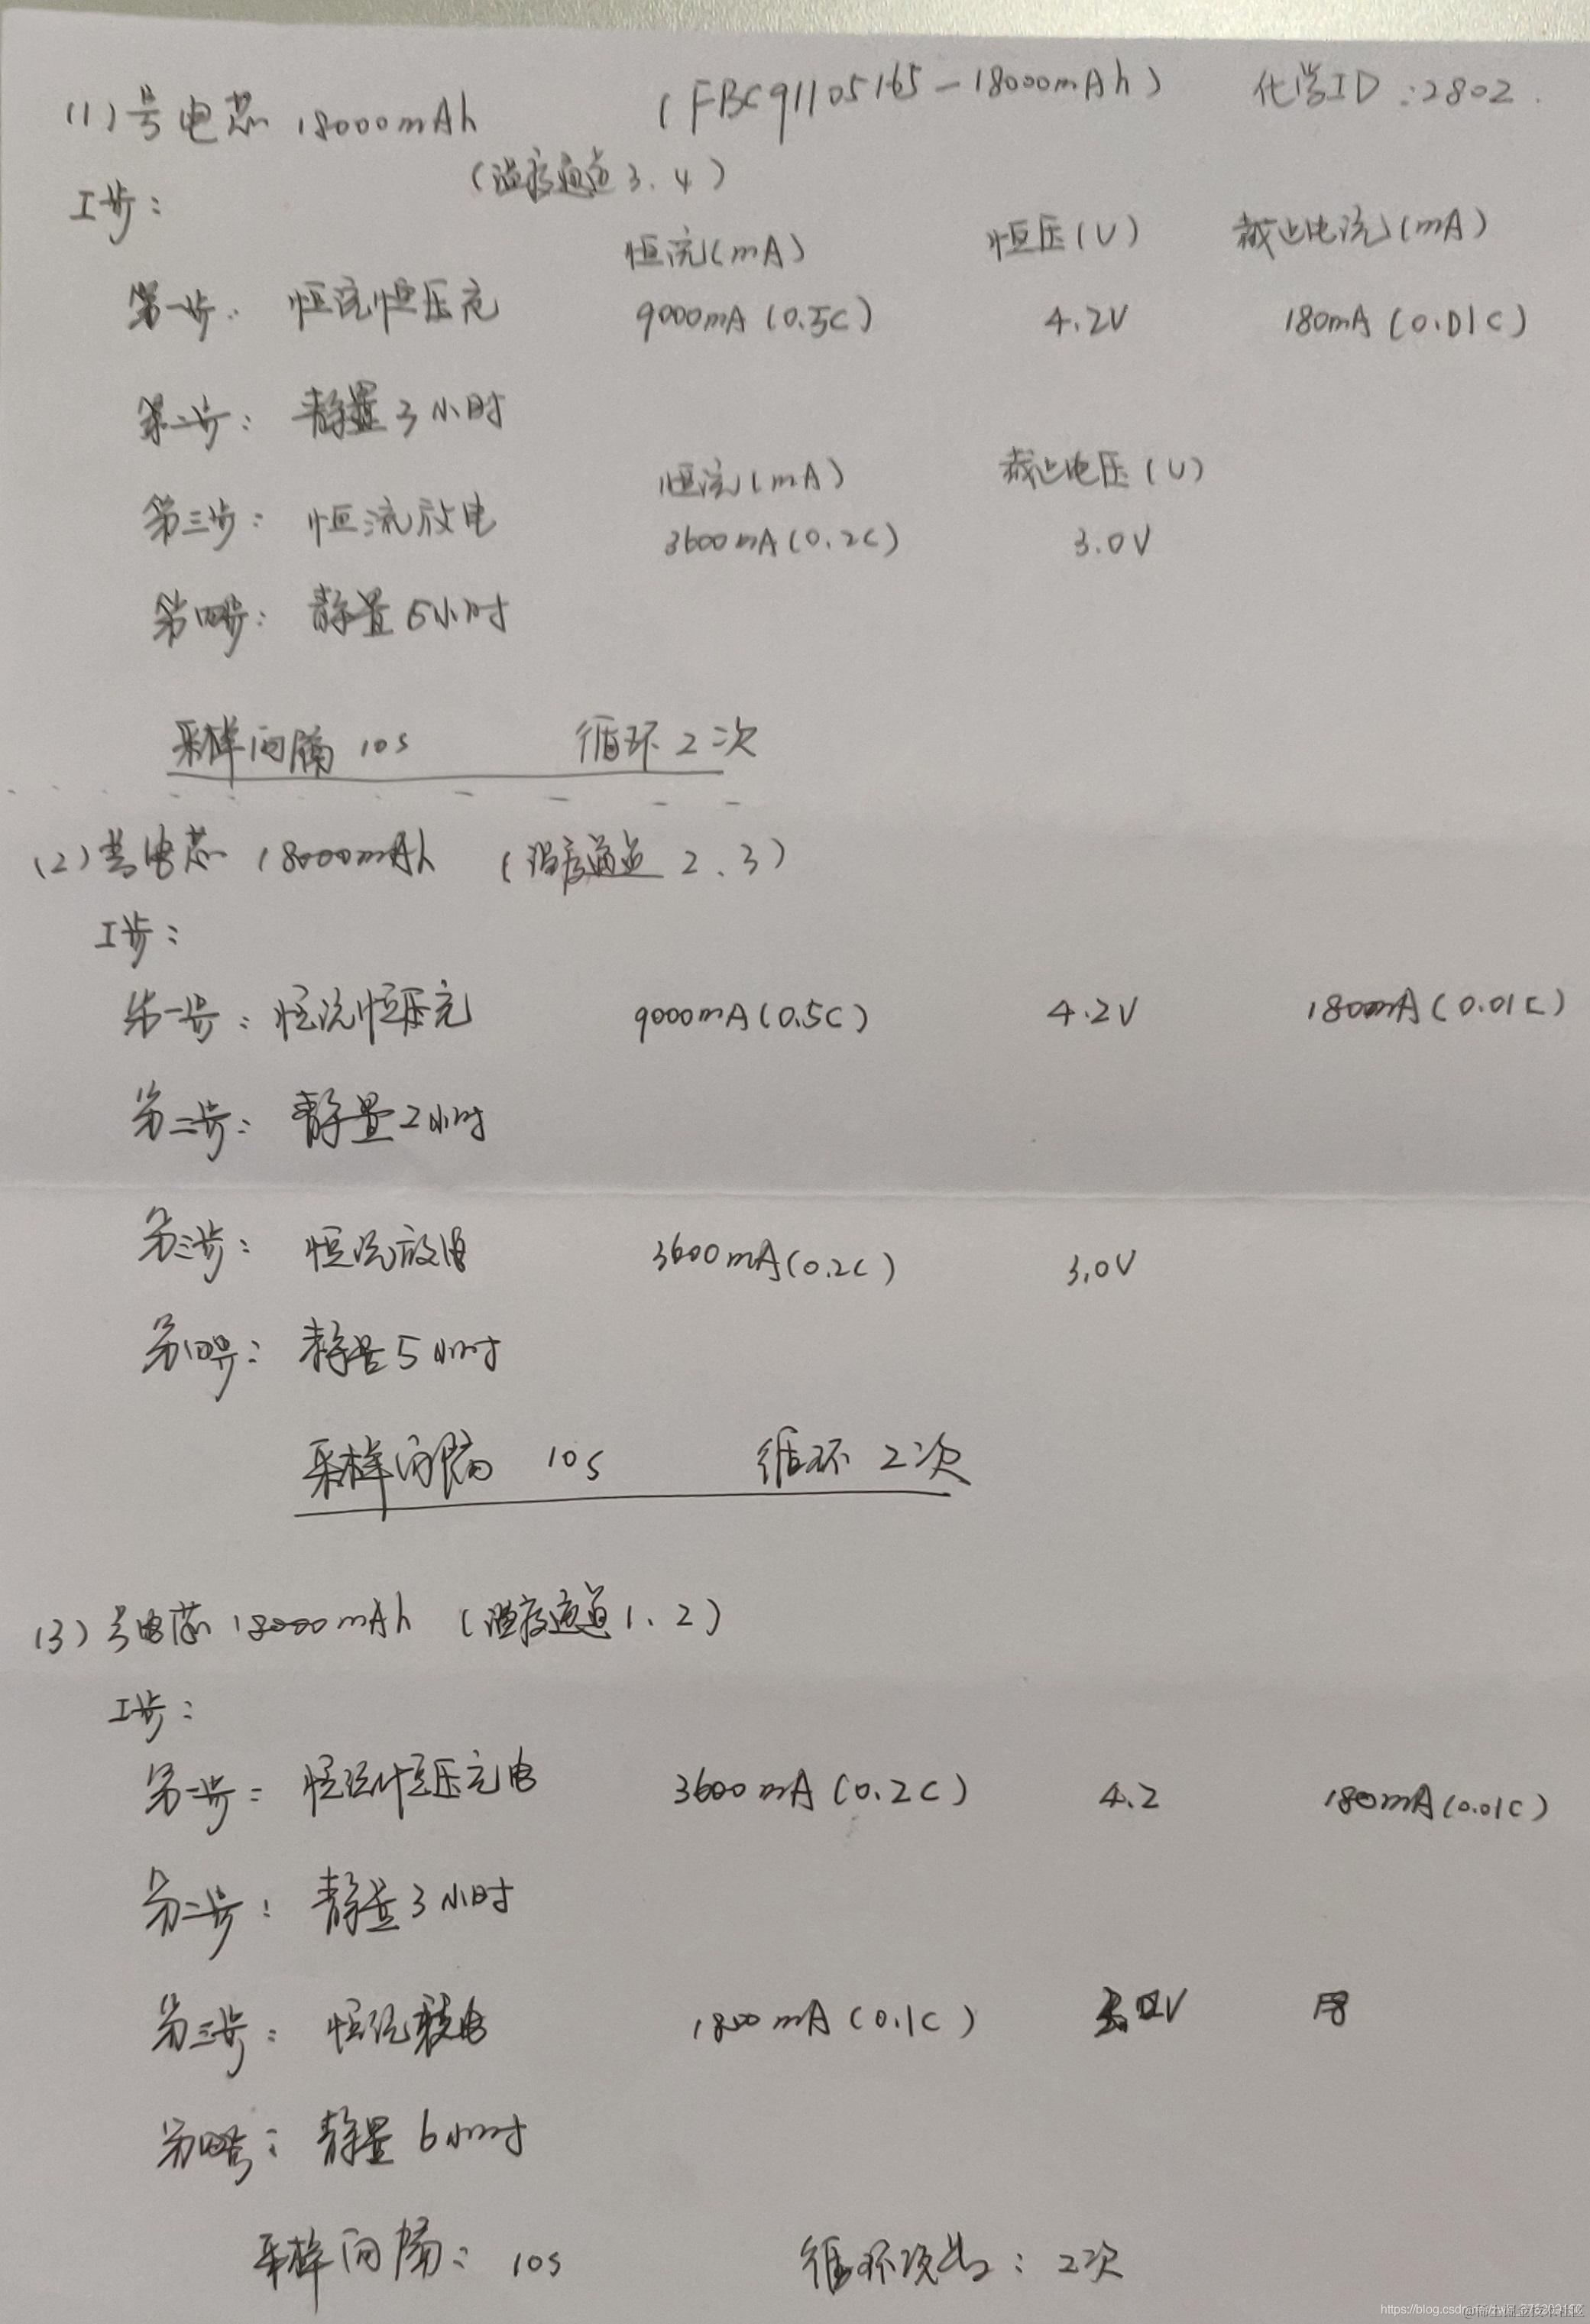 (1)号电芯 18000mAh (FBC91105165-18000mAh) 化学ID:2802
(温度通道3、4)
工步:
恒流(mA) 恒压(V) 截止电流(mA)
第一步: 恒流恒压充 9000mA(0.5C) 4.2V 180mA(0.01C)
第二步: 静置3小时
恒流(mA) 截止电压(V)
第三步: 恒流放电 3600mA(0.2C) 3.0V
第四步: 静置5小时
采样间隔 10s 循环2次
(2)号电芯 18000mAh (温度通道 2、3)
工步:
第一步: 恒流恒压充 9000mA(0.5C) 4.2V 180mA(0.01C)
第二步: 静置2小时
第三步: 恒流放电 3600mA(0.2C) 3.0V
第四步: 静置5小时
采样间隔 10s 循环 2次
(3)号电芯 18000mAh (温度通道1、2)
工步:
第一步: 恒流恒压充电 3600mA(0.2C) 4.2 180mA(0.01C)
第二步: 静置3小时
第三步: 恒流放电 1800mA(0.1C)
第四步: 静置6小时
采样间隔: 10s 循环次数: 2次